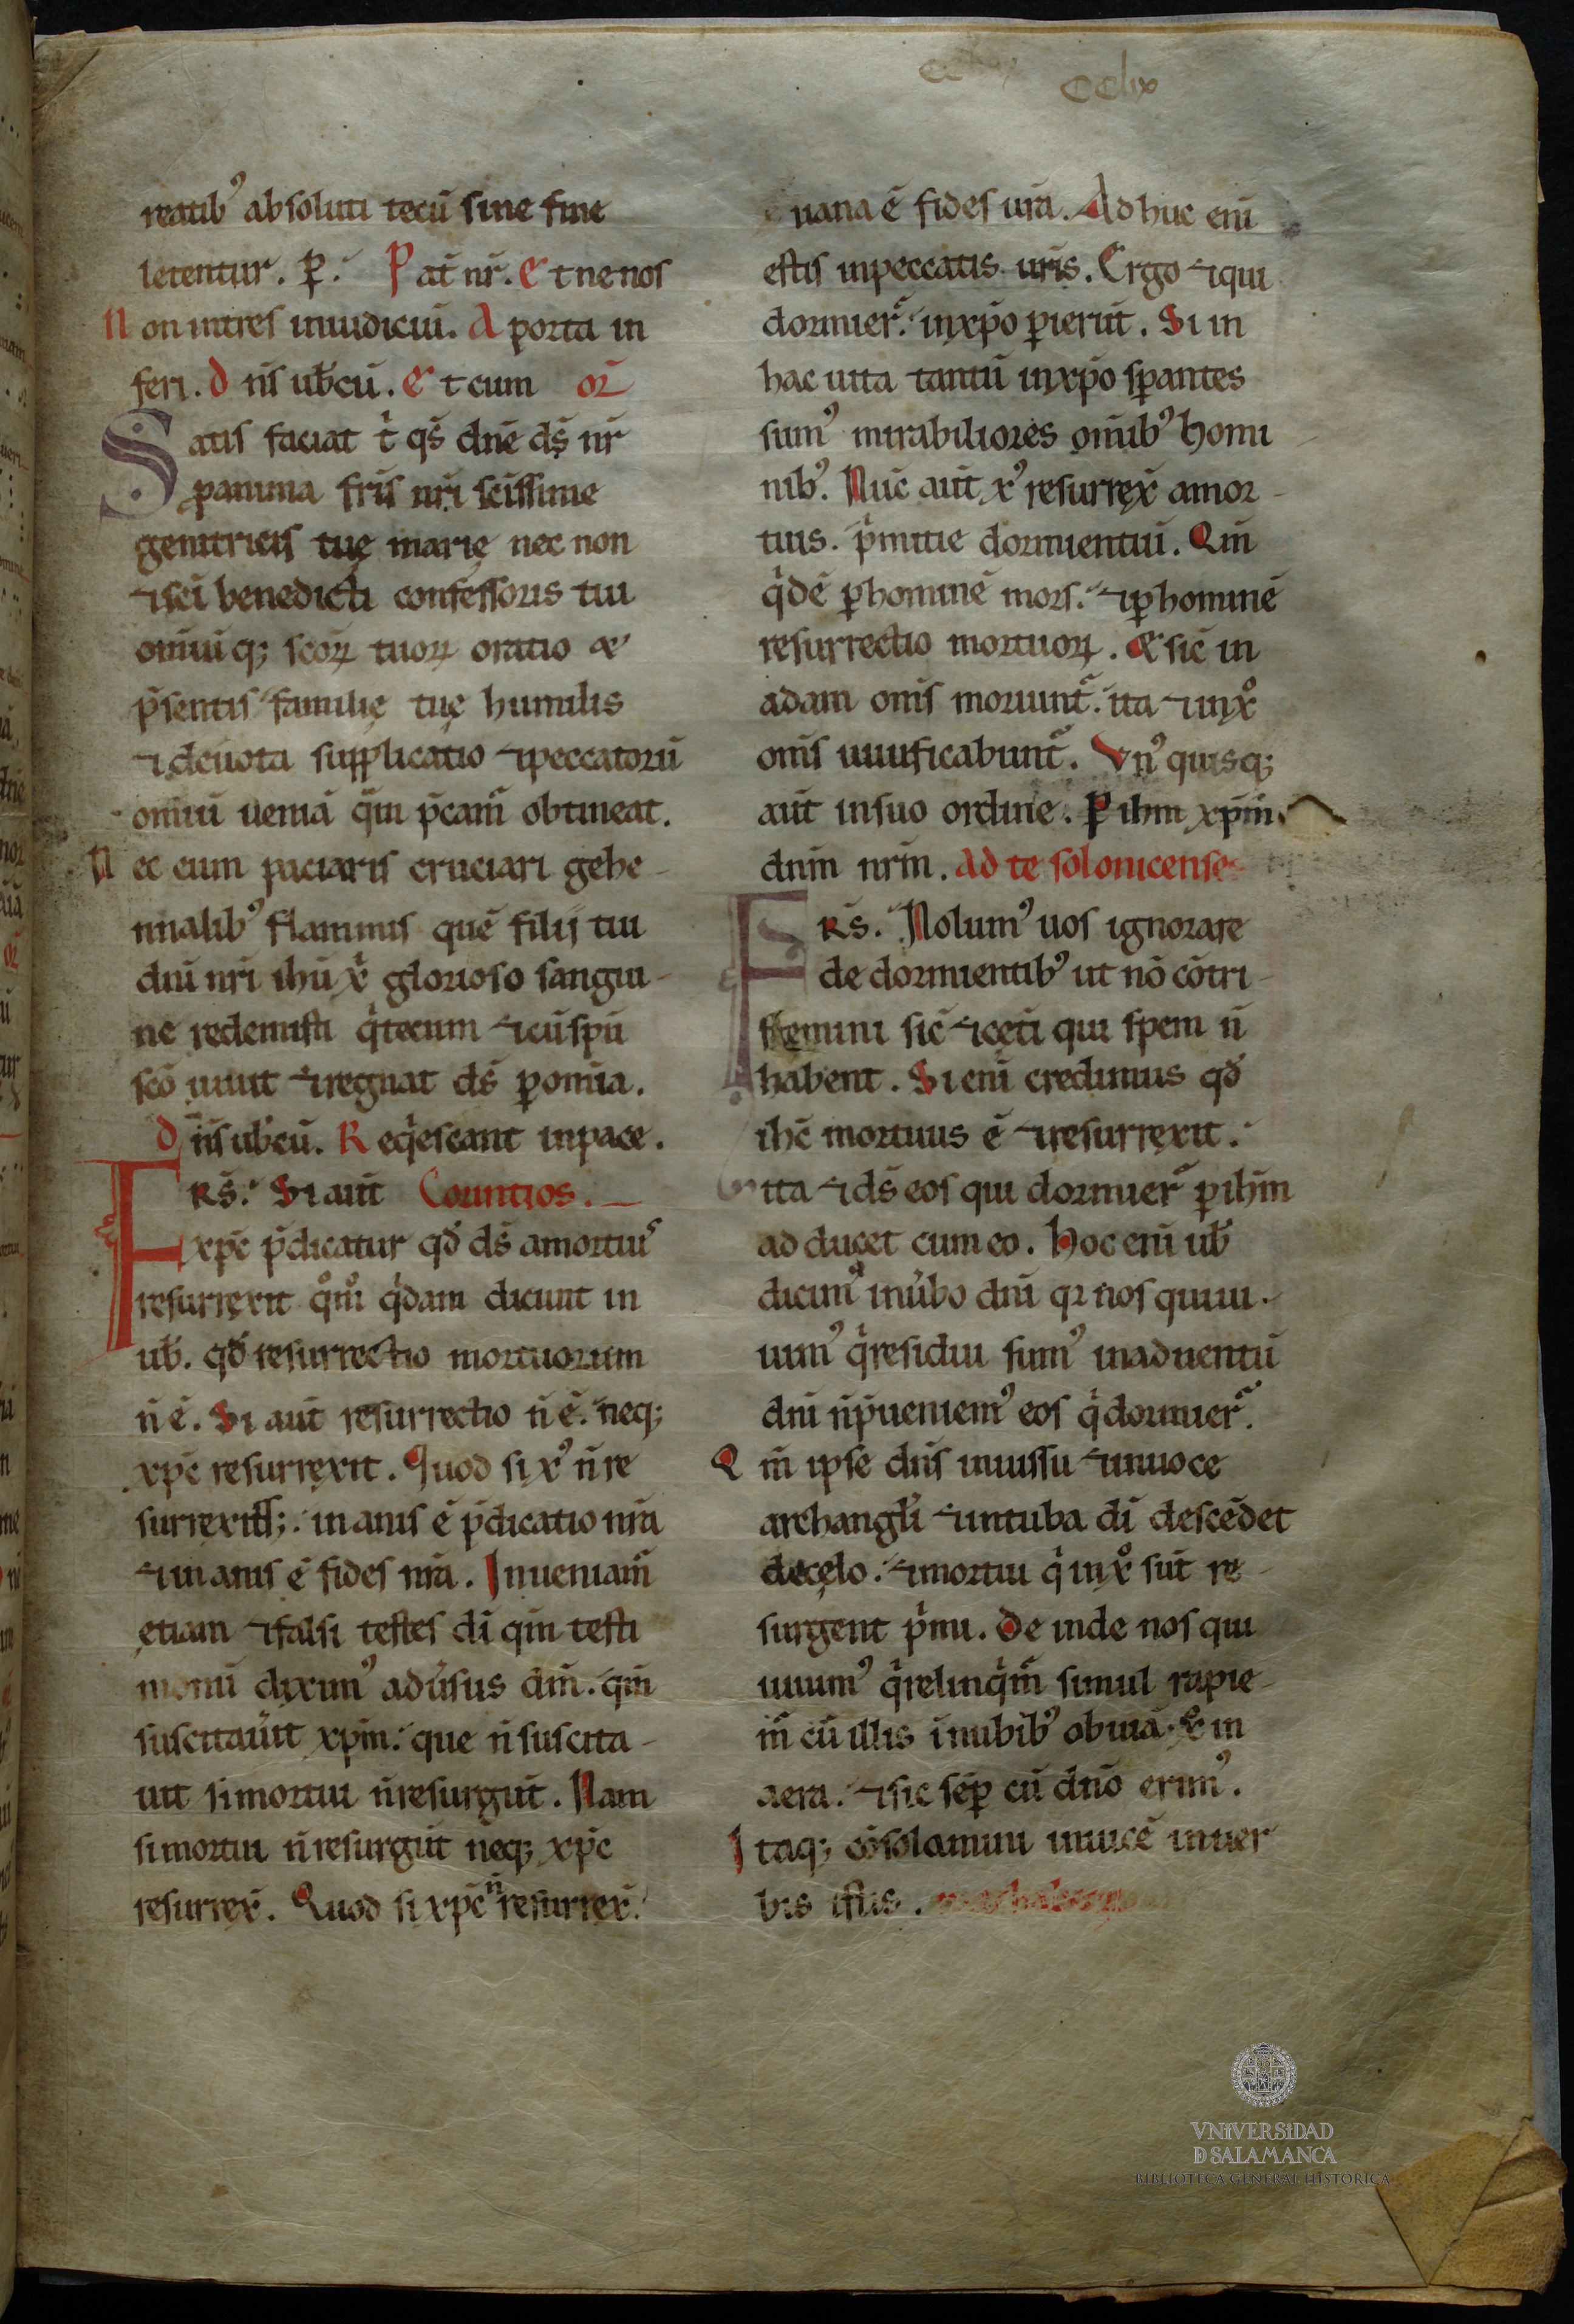 cclix
reatib᾿ absoluti tecū sine fine
letentur. ꝑ. Pat̄ nr̄. Et ne nos
Non intres iniudiciū. A porta in
feri. Dn̄s ub̄cū. Et cum or̄
Satis faciat t̄ qs̄ dn̄e ds̄ nr̄
ꝓanima fr̄is nr̄i sc̄issime
genitricis tuę marię nec non
⁊sc̄i benedicti confessoris tui
omiūq; scōꝝ tuoꝝ oratio &
p̄sentis familię tuę humilis
⁊deuota supplicatio ⁊peccatorū
omiū ueniā q̄m p̄cam̄ obtineat.
Nec eum paciaris cruciari gehe-
nnalib᾿ flammis quē filij tui
dn̄i nr̄i ih̄u xp̄i glorioso sangui-
ne redemisti q̄tecum ⁊cū sp̄u
scō uiuit ⁊regnat ds̄ ꝑ om̄ia.
Dn̄s ub̄cū. Reqͥescant inpace.
FRS̄. Si aut̄ Corintios.
xp̄c p̄dicatur qđ ds̄ amortuis
resurrexit qͦm̄ qͥdam dicunt in
ub̄. qđ resurrectio mortuorum
n̄ ē. Si aut̄ resurrectio n̄ ē. neq;
xp̄c resurrexit. Quod si x᾿ n̄ re
surrexit; inanis ē p̄dicatio nr̄a
⁊inanis ē fides nr̄a. Inueniam̄
etiam ⁊falsi testes dī qm̄ testi
moniū dixim᾿ adūsus dm̄. qm̄
suscitaūit xp̄m. que n̄ suscita-
uit simortui n̄resurgūt. Nam
simortui n̄resurgūt neq; xp̄c
resurrex̄. Quod si xp̄c n̄ resurrex̄.
uana ē fides ur̄a. Adhuc enī
estis inpeccatis ur̄is. Ergo ⁊qui
dormier̄. inxp̄o ꝑierūt. Si in
hac uita tantū inxp̄o sꝑantes
sum᾿ mirabiliores om̄ib᾿ homi
nib᾿. Nūc aut̄ x᾿ resurrex̄ amor-
tuis. pͥmitie dormientiū. Qm̄
qͥdē ꝑhominē mors. ⁊ꝑhominē
resurrectio mortuoꝝ. & sic̄ in
adam om̄s moriunt̄. ita ⁊inxͦ
om̄s uiuificabunt̄. Vn᾿quisq;
aut̄ insuo ordine. P ih̄m xp̄m
dn̄m nr̄m. Ad te solonicenses
FRS̄. Nolum᾿ uos ignorare
de dormientib᾿ ut nō cōtri-
stemini sic̄ ⁊cęti qui spem n̄
habent. Si enī credimus qđ
ih̄c mortuus ē ⁊resurrexit.
ita ⁊ds̄ eos qui dormier̄ ꝑih̄m
ad ducet cum eo. Hoc enī ub̄
dicim᾿ inūbo dn̄i qꝛ nos quiui-
uim᾿ qͥresidui sum᾿ inaduentū
dn̄i n̄p̄ueniem᾿ eos qͥdormier̄.
Qm̄ ipse dn̄s iniussu ⁊inuoce
archangl̄i ⁊intuba dī descēdet
decęlo. ⁊mortui qͥ inxͦ sūt re-
surgent pͥmi. Deinde nos qui
uiuim᾿ qͥrelinqͥm̄ simul rapie-
m̄ cū illis inubib᾿ obuiā xͦ in
aera. ⁊sic sēꝑ cū dn̄o erim᾿.
Itaq; cōsolamini inuicē inuer
bis istis.
VNIVERSIDAD
D SALAMANCA
BIBLIOTECA GENERAL HISTÓRICA